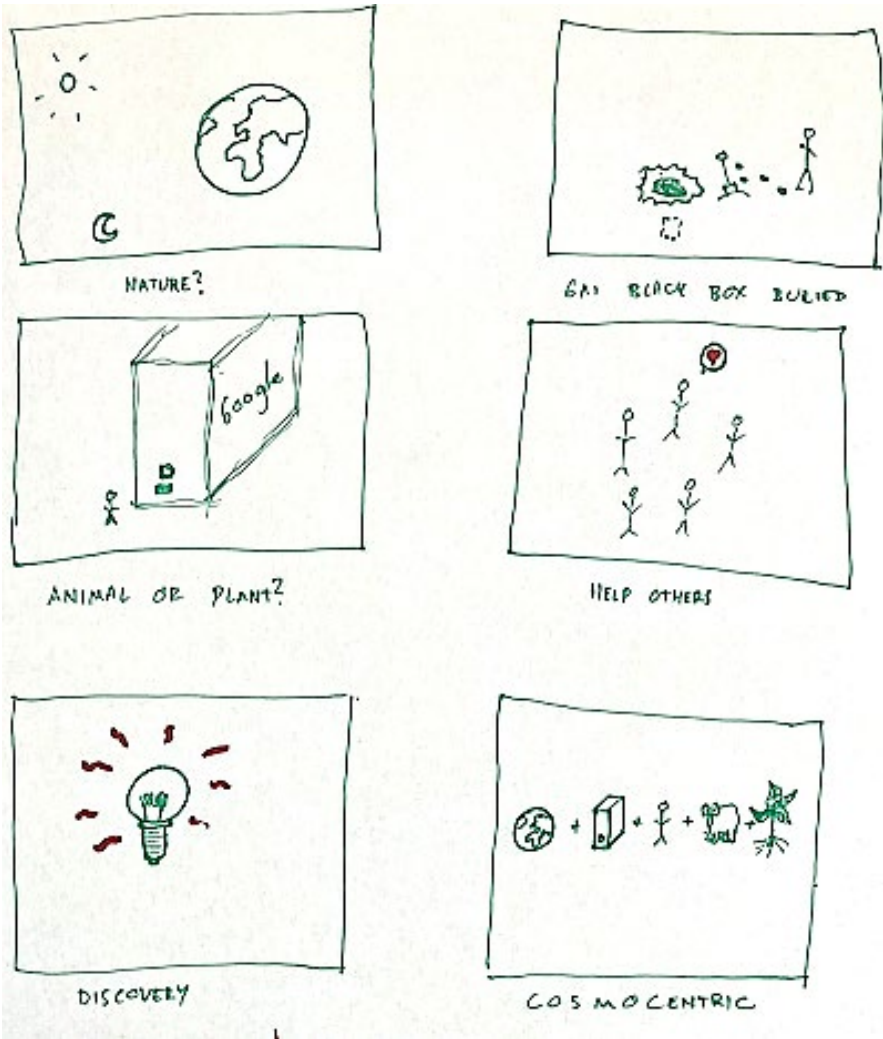 NATURE?
BLACK BOX BURIED
Google
ANIMAL OR PLANT?
HELP OTHERS
DISCOVERY
COSMOCENTRIC